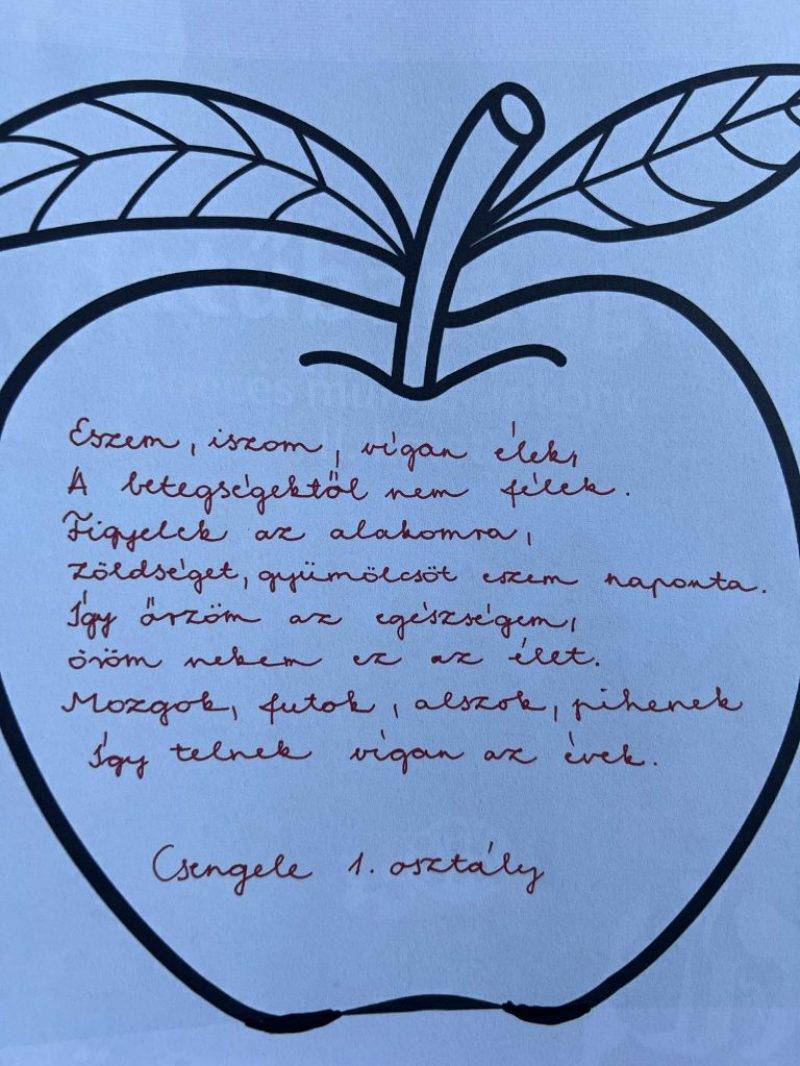 Eszem, iszom, vígan élek,
A betegségektől nem félek.
Figyelek az alakomra,
Zöldséget, gyümölcsöt eszem naponta.
Így őrzöm az egészségem,
öröm nekem ez az élet.
Mozgok, futok, alszok, pihenek
Így telnek vígan az évek.
Csengele 1. osztály